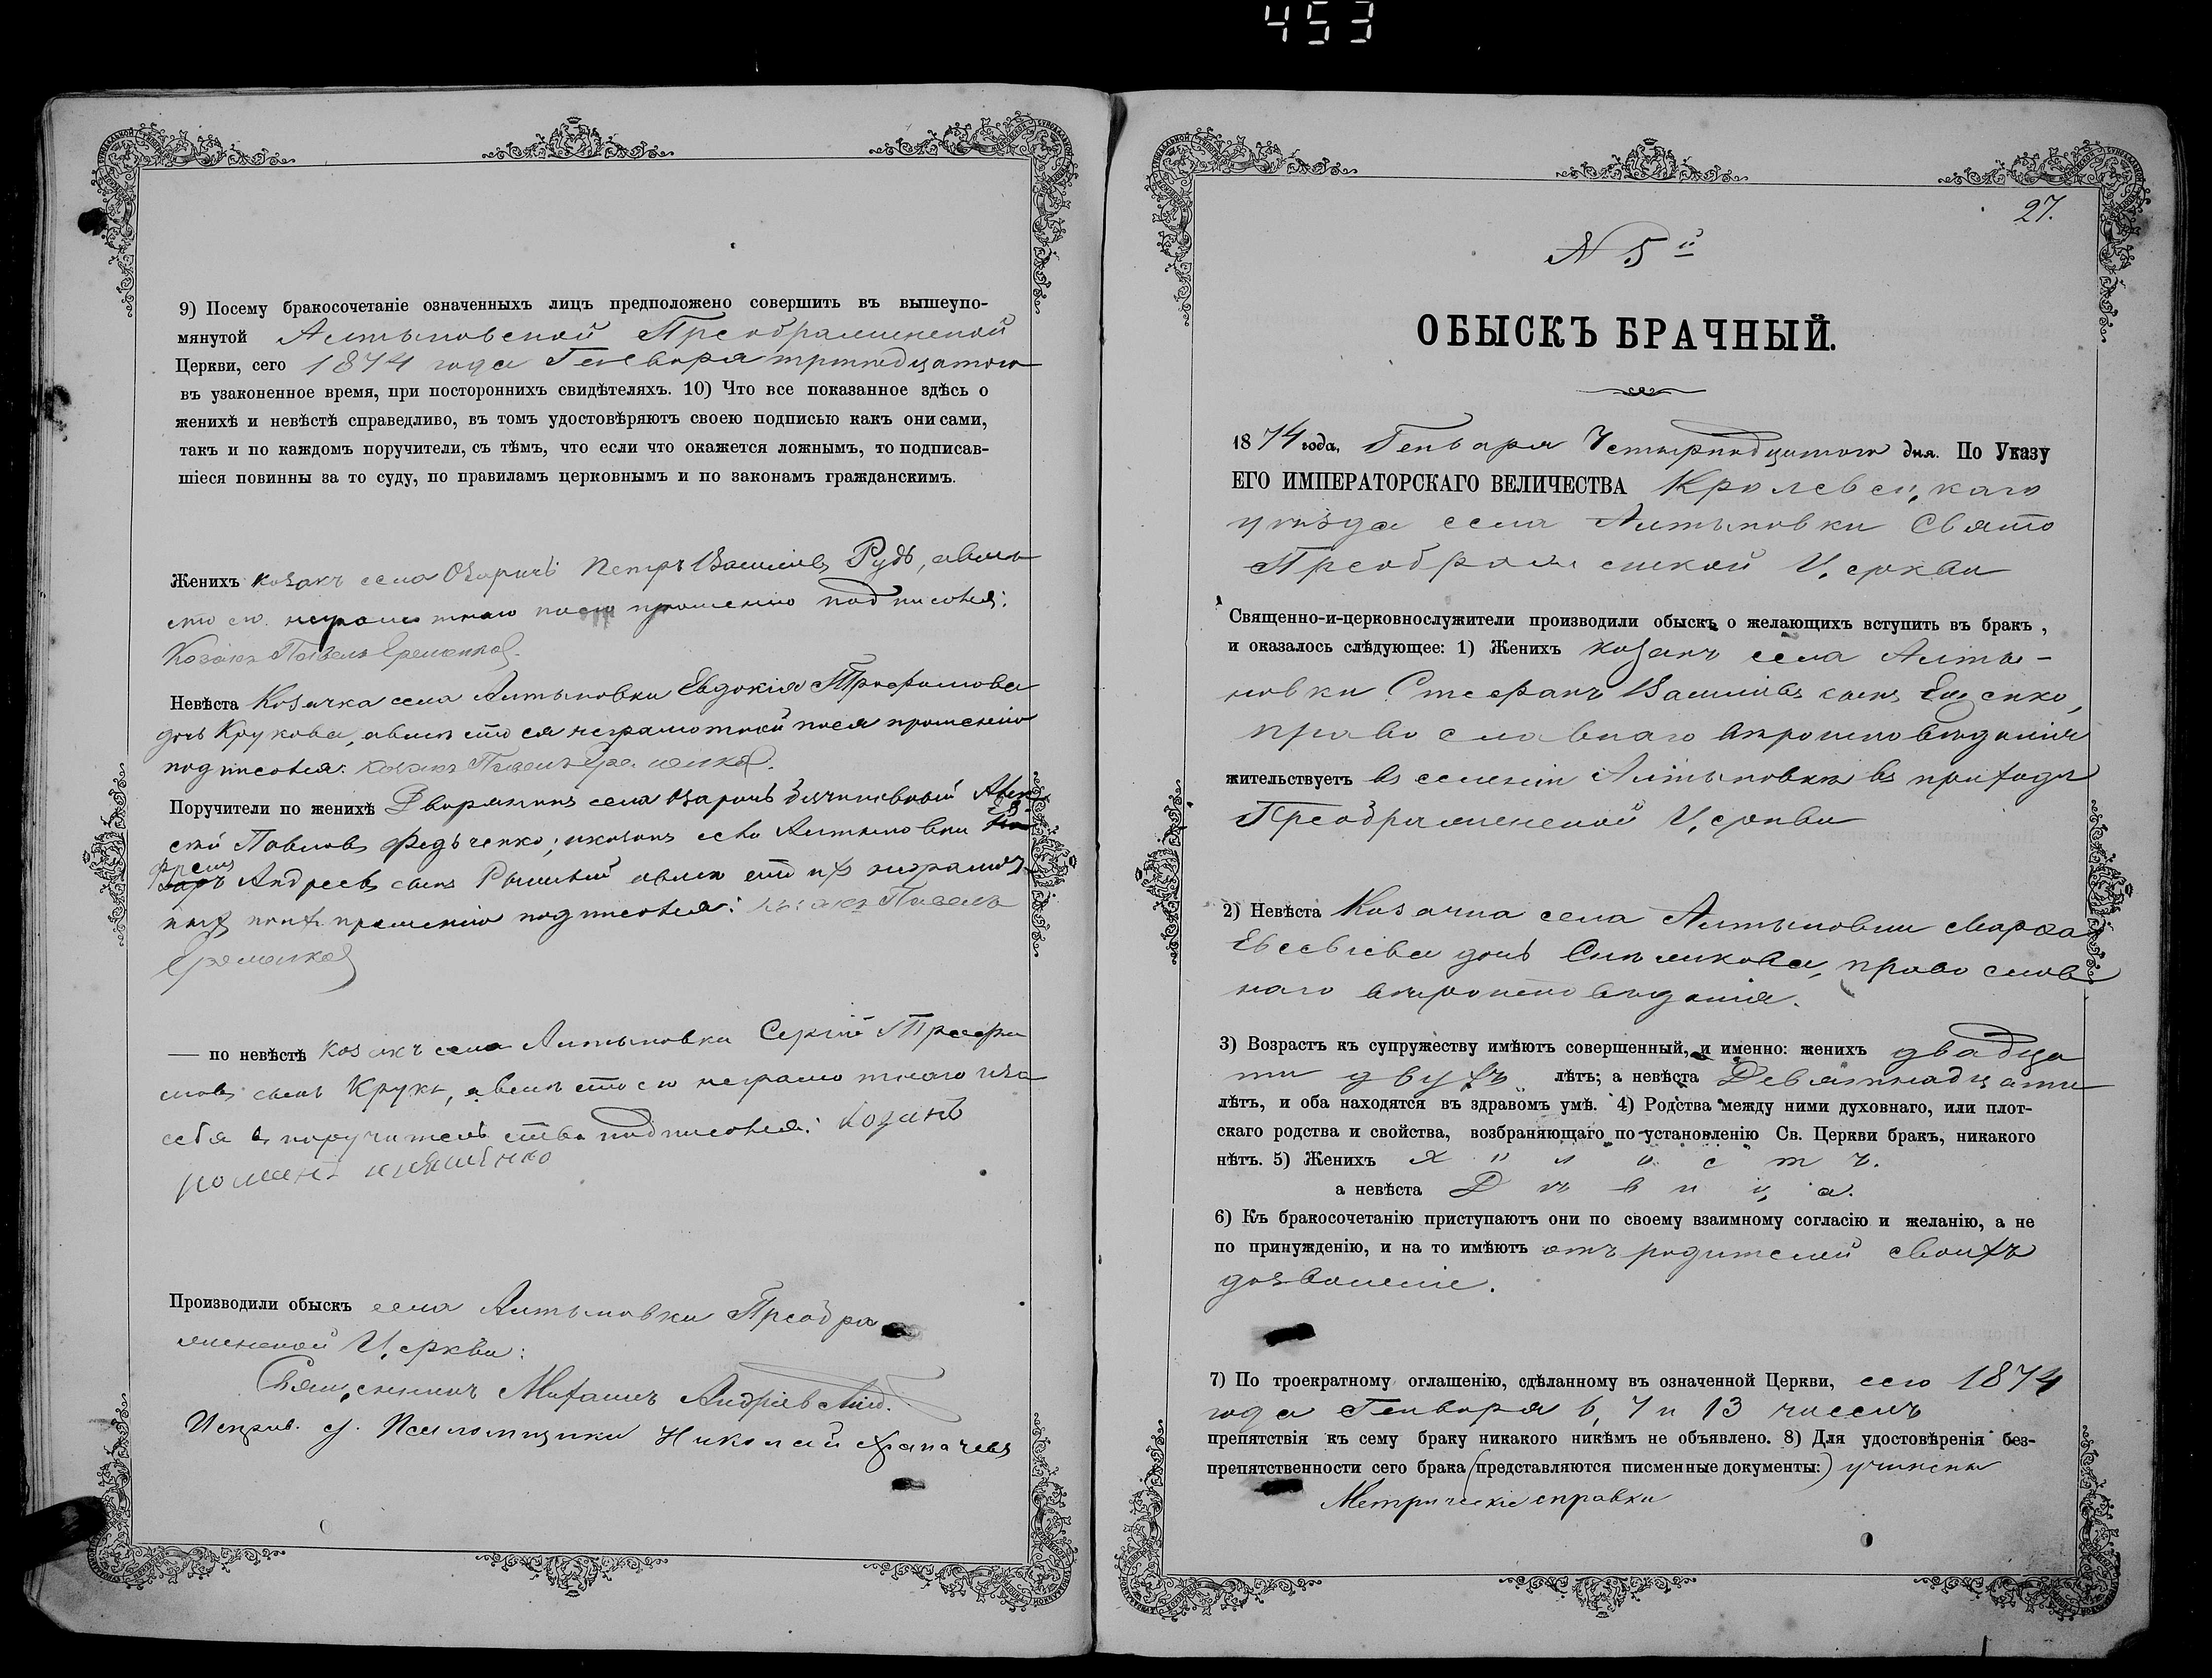 453
9) Посему бракосочетаніе означенныхъ лицъ предположено совершить въ вышеупо-
мянутой Алтыновской Преображенской
Церкви, сего 1874 года Генваря тринадцатого
въ узаконенное время, при постороннихъ свидѣтеляхъ. 10) Что все показанное здѣсь о
женихѣ и невѣстѣ справедливо, въ томъ удостовѣряютъ своею подписью какъ они сами,
такъ и по каждомъ поручители, съ тѣмъ, что если что окажется ложнымъ, то подписав-
шіеся повинны за то суду, по правиламъ церковнымъ и по законамъ гражданскимъ.
Женихъ козакъ села Озаричъ Петръ Васильевъ Рудь, авмѣ
сто его неграмотнаго по его прошенію подписался:
Козакъ Павелъ Ермоленко
Невѣста Козачка села Алтыновки Евдокія Трофимова
дочь Крукова, авмѣсто ея неграмотной по ея прошенію
подписался: козакъ Павелъ
Поручители по женихѣ Дворянинъ села Озаричъ Алек
сѣй Павловъ Федьченко; икозакъ села Алтыновки
Андреевъ сынъ авмѣсто ихъ неграмот
ныхъ по ихъ прошенію подписался: козакъ Павелъ
— по невѣстѣ козакъ села Алтыновки Сергій Трофи
мовъ сынъ Крукъ, авмѣсто его неграмотнаго иза
себя в поручительства подписался: козакъ
роман
Производили обыскъ села Алтыновки Преобра
женской Церкви:
Священникъ Михаилъ Андріев
Исправ. д. Псаломщика Николай
27.
N 5й
ОБЫСКЪ БРАЧНЫЙ.
1874 года, Генваря Четырнадцатого дня. По Указу
ЕГО ИМПЕРАТОРСКАГО ВЕЛИЧЕСТВА Кролевецкаго
уѣзда села Алтыновки Свято
Преображенской Церкви
Священно-и-церковнослужители производили обыскъ о желающихъ вступить въ бракъ,
и оказалось слѣдующее: 1) Женихъ козакъ села Алты-
новки Стефанъ Васильевъ сынъ Ященко,
православнаго вѣроисповѣданія
жительствуетъ въ селеніи Алтыновкѣ въ приходѣ
Преображенской Церкви
2) Невѣста Козачка села Алтыновки Марфа
Евсевіева дочь православ
наго вѣроисповѣданія.
3) Возрастъ къ супружеству имѣютъ совершенный, и именно: женихъ двадца
ти двухъ лѣтъ; а невѣста Девятнадцати
лѣтъ, и оба находятся въ здравомъ умѣ. 4) Родства между ними духовнаго, или плот-
скаго родства и свойства, возбраняющаго по установленію Св. Церкви бракъ, никакого
нѣтъ. 5) Женихъ Холостъ.
а невѣста Дѣвица.
6) Къ бракосочетанію приступаютъ они по своему взаимному согласію и желанію, а не
по принужденію, и на то имѣютъ отъ родителей своихъ
дозволеніе.
7) По троекратному оглашенію, сдѣланному въ означенной Церкви, сего 1874
года Генваря 6, 7 и 13 чиселъ
препятствія къ сему браку никакого никѣмъ не объявлено. 8) Для удостовѣренія без-
препятственности сего брака (представляются писменные документы:) учинены
Метрическіе справки